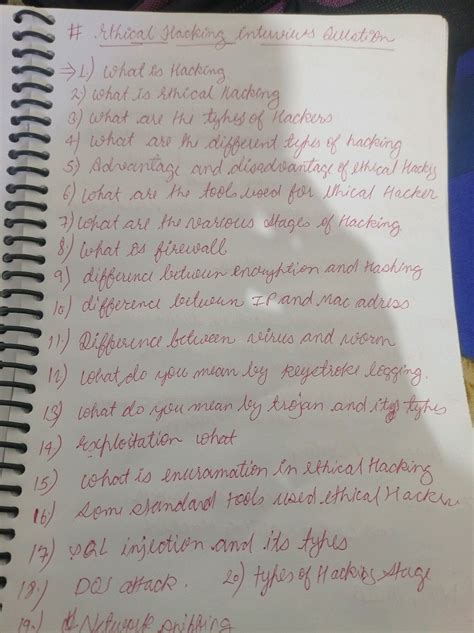 # Ethical Hacking interviews Question
⇒ 1.) What is Hacking
2) What is Ethical Hacking
3) What are the types of Hackers
4) What are the different types of hacking
5) Advantage and disadvantage of ethical Hacking
6) What are the tools used for Ethical Hacker
7) What are the various stages of Hacking
8) What is firewall
9) difference between encryption and Hashing
10) difference between IP and Mac adress
11.) Difference between virus and worm
12) What do you mean by keystroke logging.
13) What do you mean by trojan and its types
14) Exploitation what
15) What is enuramation in ethical Hacking
16) Some standard tools used ethical Hacker
17) SQL injection and its types
18.) DOS attack. 20) types of Hacking Stage
19.) Network sniffing